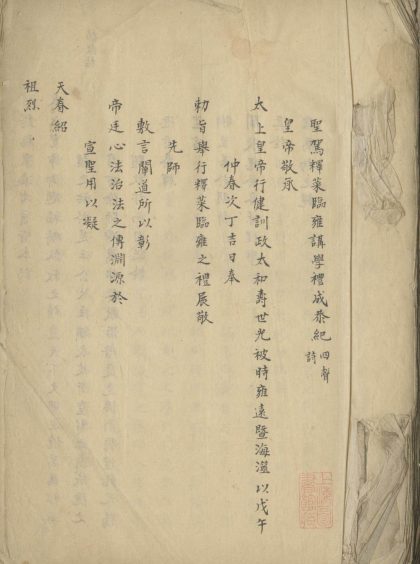 聖駕釋菜臨雍講學禮成恭紀四聲詩
皇帝敬承
太上皇帝行健訓政太和壽世光被時雍遠暨海澨以戊午
仲春次丁吉日奉
勅旨舉行釋菜臨雍之禮展敬
先師
敷言闡道所以彰
帝廷心法治法之傳淵源於
宣聖用以凝
天眷紹
祖烈